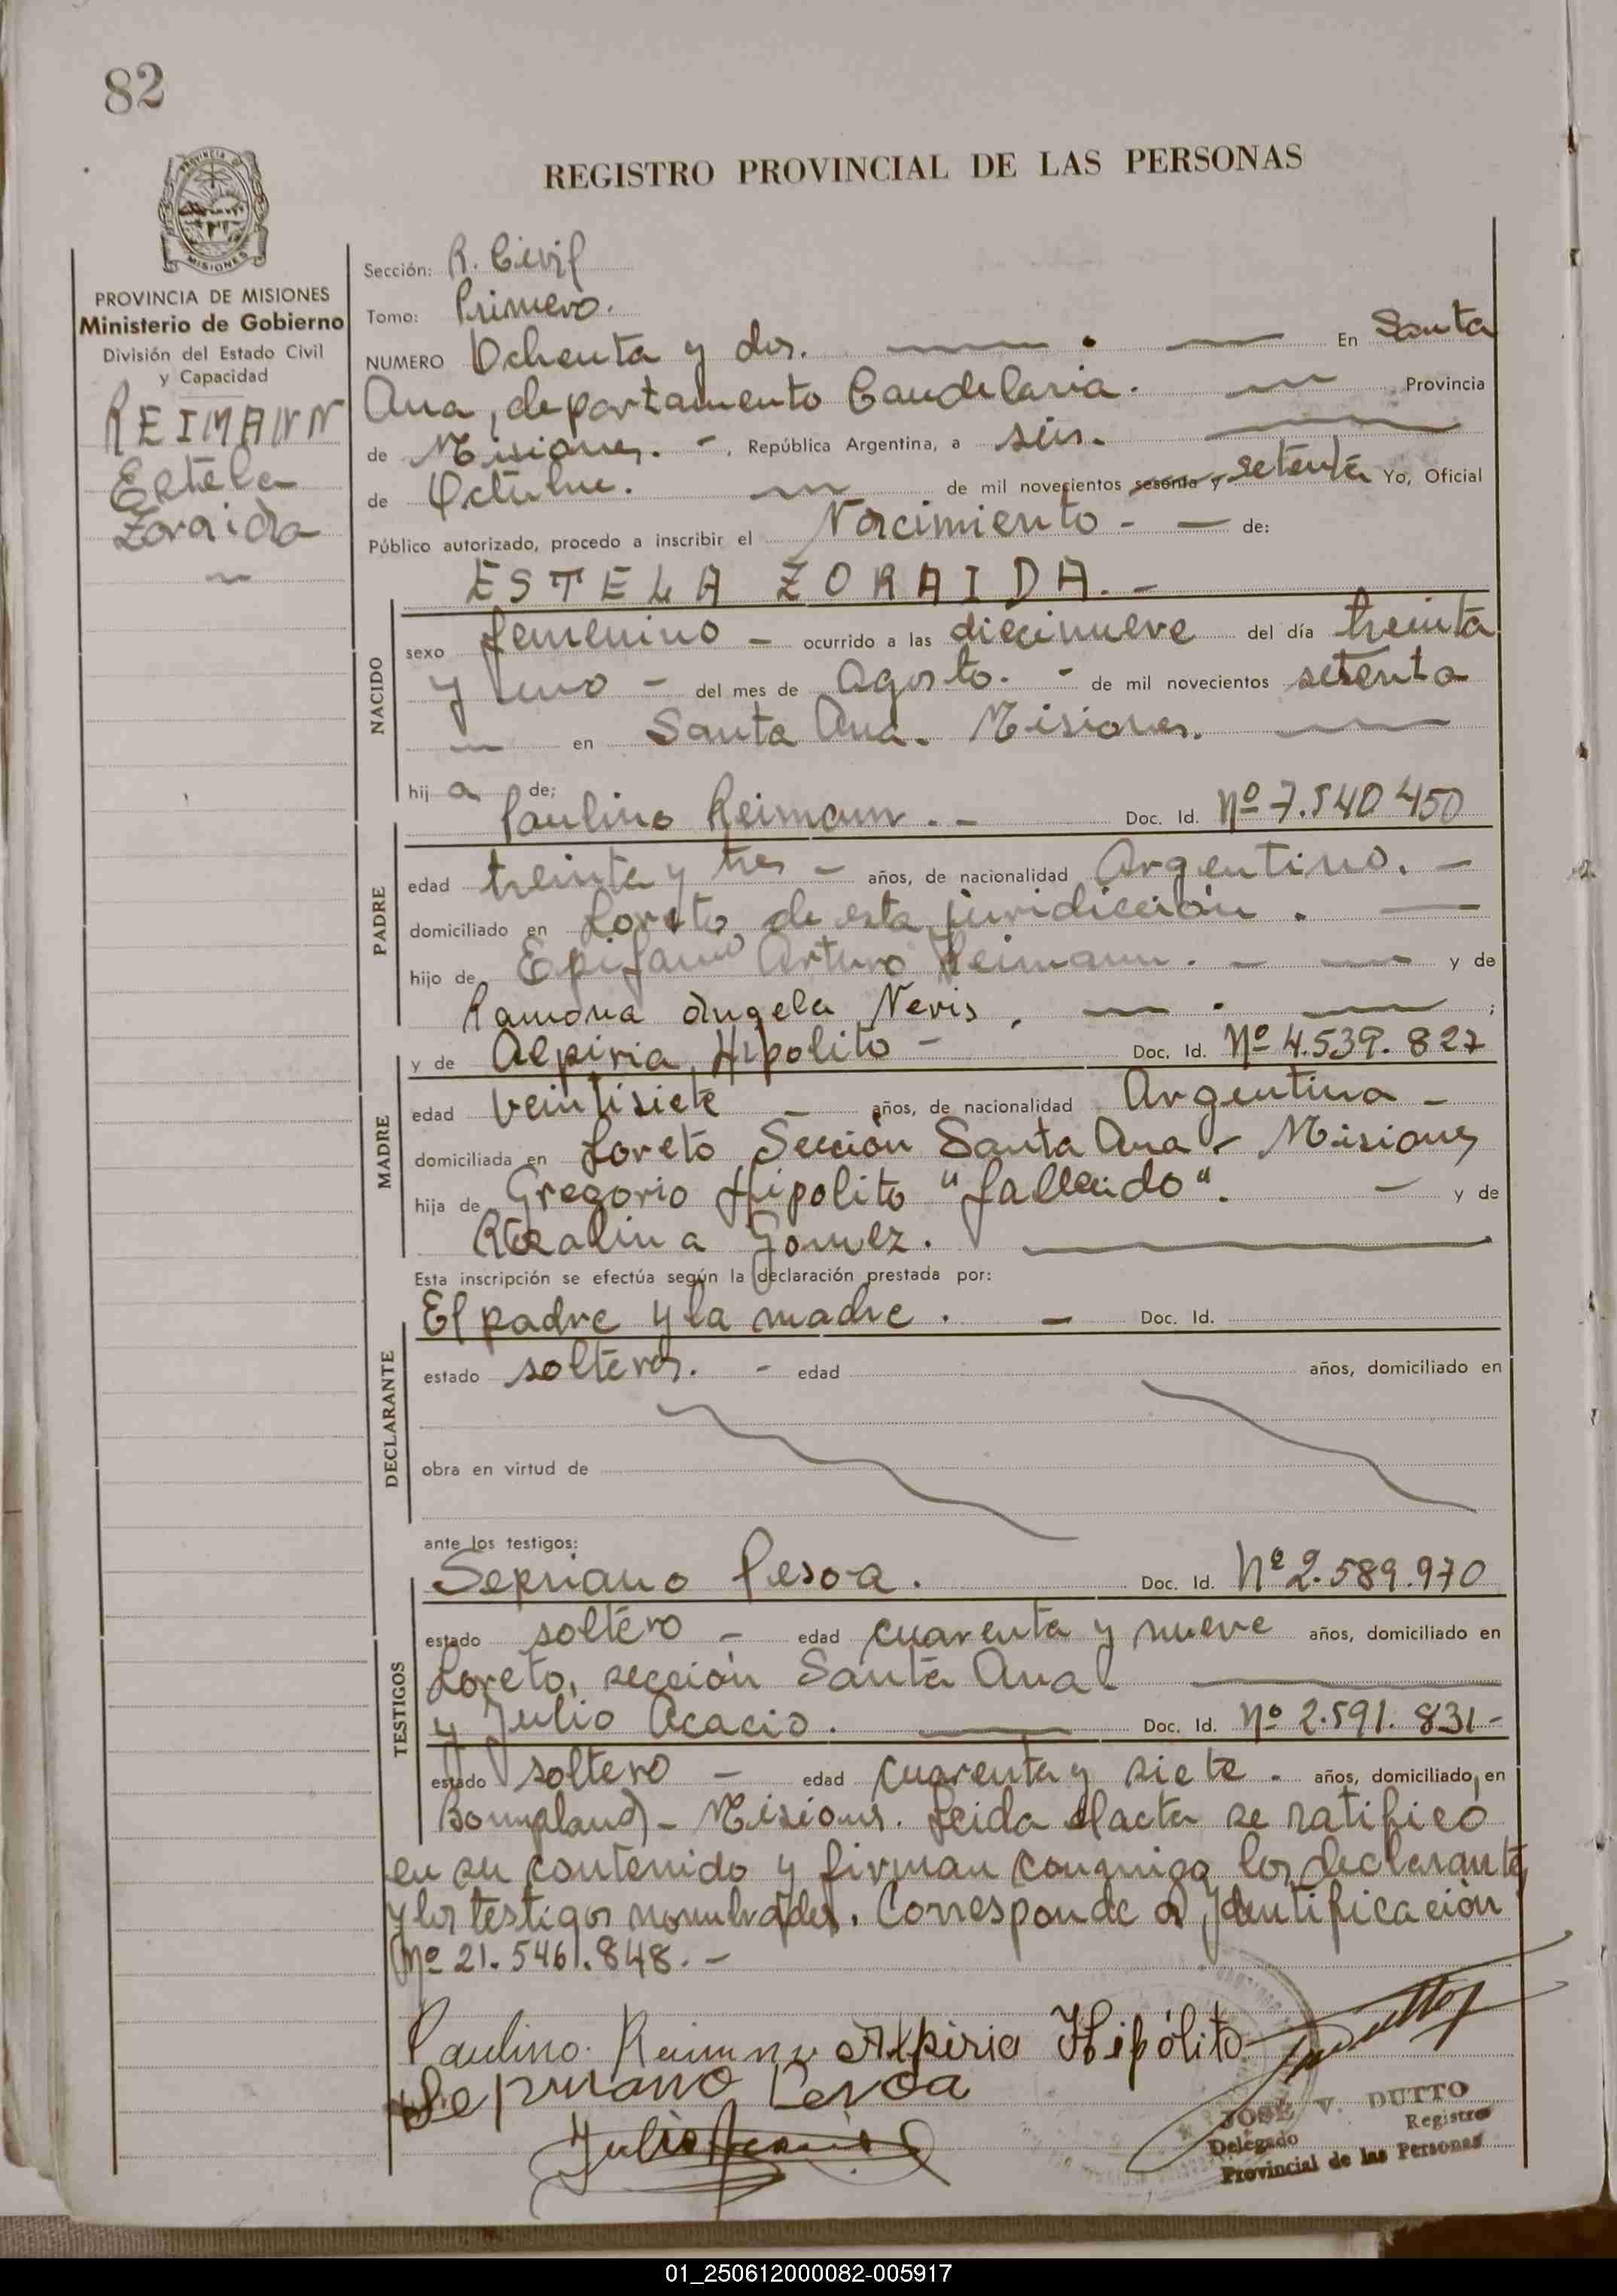 82
PROVINCIA DE MISIONES
REGISTRO PROVINCIAL DE LAS PERSONAS
PROVINCIA DE MISIONES
Ministerio de Gobierno
División del Estado Civil
y Capacidad
REIMANN
Estela
Zoraida
Sección: R. Civil
Tomo: Primero.
NUMERO Ochenta y dos. En Santa
Ana, departamento Candelaria. Provincia
de Misiones. -, República Argentina, a seis.
de Octubre. de mil novecientos sesenta y setenta Yo, Oficial
Público autorizado, procedo a inscribir el Nacimiento - - de:
ESTELA ZORAIDA. -
NACIDO
sexo femenino - ocurrido a las diecinueve del día treinta
y uno - del mes de Agosto. - de mil novecientos setenta
en Santa Ana. Misiones.
hija de;
Paulino Reimann. - Doc. Id. Nº 7.540450
PADRE
edad treinta y tres - años, de nacionalidad Argentino. -
domiciliado en Loreto de esta juridicción.
hijo de Epifanio Arturo Reimann. - y de
Ramona Angela Neris. ;
y de Alpiria Hipolito - Doc. Id. Nº 4.539.827
MADRE
edad veintisiete - años, de nacionalidad Argentina -
domiciliada en Loreto Sección Santa Ana - Misiones
hija de Gregorio Hipolito "fallecido". - y de
Gomez.
Esta inscripción se efectúa según la declaración prestada por:
El padre y la madre. - Doc. Id.
DECLARANTE
estado solteros. - edad años, domiciliado en
obra en virtud de
ante los testigos:
Sepriano Pesoa. Doc. Id. Nº 2.589.970
TESTIGOS
estado soltero - edad cuarenta y nueve años, domiciliado en
Loreto, sección Santa Ana
y Julio Acacio. Doc. Id. Nº 2.591.831-
estado soltero - edad cuarenta y siete. años, domiciliado en
Bompland - Misiones. Leida el acta se ratificó
en su contenido y firman conmigo los declarantes
y los testigos nombrados. Corresponde a Identificación
Nº 21.546.848. -
Paulino Reimann Alpiria Hipólito
Sepriano Pesoa
Julio Acacio
JOSE V. DUTTO
Delegado Registro
Provincial de las Personas
01_250612000082-005917